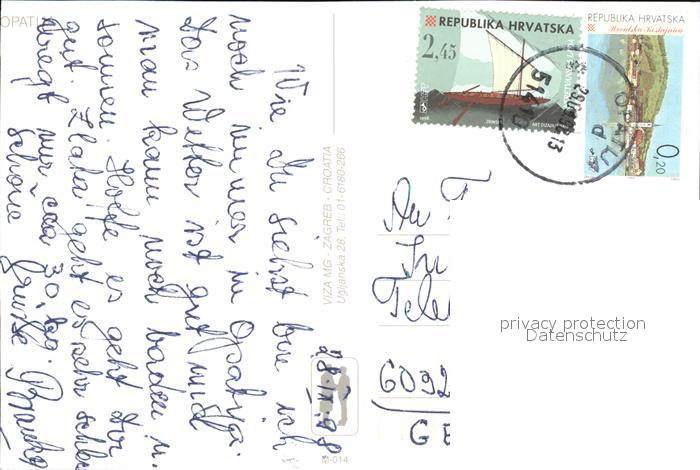 OPATI
28.IX.98
Wie Du siehst bin ich
noch immer in Opatija.
Das Wetter ist gut und
man kann noch baden u.
sonnen. Hoffe es geht Dir
gut. Zlata geht es sehr schlecht
wegt nur cca 30 kg.
Schöne Grüsse Branka
VIZA MG - ZAGREB - CROATIA
Ugljanska 28, Tel.: 01-6180-266
M-014
REPUBLIKA HRVATSKA
2,45
REPUBLIKA HRVATSKA
Hrvatska Kostajnica
0,20
51410
An
Tele
6092
G E
privacy protection
Datenschutz